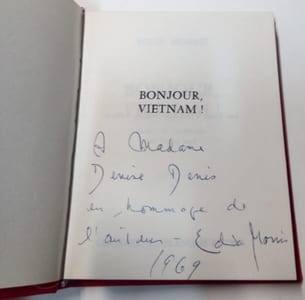 BONJOUR,
VIETNAM !
A Madame
Denise Denis
en hommage de
l'auteur - Edita Morris
1969